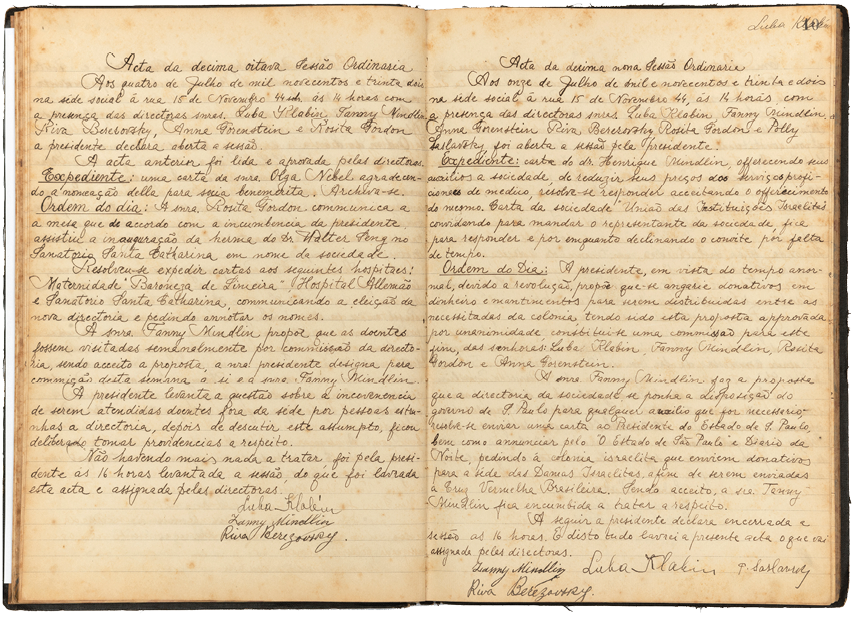 Acta da decima oitava Sessão Ordinaria
Aos quatro de Julho de mil novecentos e trinta dois
na séde social á rua 15 de Novembro 44 sob. ás 14 horas com
a presença das directoras snras. Luba Klabin, Fanny Mindlin
Riva Berezovsky, Anna Gorenstein e Rosita Gordon
a presidente declara aberta a sessão.
A acta anterior foi lida e aprovada pelas directoras.
Expediente: uma carta da snra. Olga Nebel agradecen-
do a nomeação della para socia benemerita. Archiva-se.
Ordem do dia: A snra. Rosita Gordon communica a
a mesa que de accordo com a incumbencia da presidente,
assistiu a inauguração da herma do Dr. Walter Seng no
Sanatorio Santa Catharina em nome da sociedade.
Resolveu-se expedir cartas aos seguintes hospitaes:
Maternidade "Baroneza de Limeira" Hospital Allemão
e Sanatorio Santa Catharina, communicando a eleição da
nova directoria e pedindo annotar os nomes.
A snra Fanny Mindlin propoz que as doentes
fossem visitadas semanalmente por commissão da directo-
ria, sendo acceito a proposta, a nra. presidente designa para
commição desta semana a si e a snra Fanny Mindlin.
A presidente levanta a questão sobre a incovenencia
de serem attendidas doentes fora da séde por pessoas estra-
nhas a directoria, depois de descutir este assumpto, ficou
deliberado tomar providencias a respeito.
Não havendo mais nada a tratar, foi pela presi-
dente ás 16 horas levantada a sessão, do que foi lavrada
esta acta e assignada pelas directoras.
Luba Klabin
Fanny Mindlin
Riva Berezovsky.
Luba Klabin
Acta da decima nona Sessão Ordinaria
Aos onze de Julho de mil e novecentos e trinta e dois
na séde social á rua 15 de Novembro 44, ás 14 horas com
a presença das directoras snras. Luba Klabin, Fanny Mindlin,
Anna Gorenstein Riva Berezovsky, Rosita Gordon e Polly
Saslavsky foi aberta a sessão pela presidente.
Expediente: carta do dr. Henrique Mindlin, offerecendo seus
auxilios a sociedade, de reduzir seus preços dos serviços profis-
cionaes de medico, resolve-se responder acceitando o offerecimento
do mesmo. Carta da sociedade "União das Instituições Israelitas"
convidando para mandar o representante da sociedade, fica
para responder e por enquanto declinando o convite por falta
de tempo.
Ordem do Dia: A presidente, em vista do tempo anor-
mal, devido a revolução, propõe que-se angarie donativos em
dinheiro e mantimentos para serem distribuidas entre as
necessitadas da colonia tendo sido esta proposta approvada
por unanomidade constitui-se uma commissão para este
fim, das senhoras: Luba Klabin, Fannny Mindlin, Rosita
Gordon e Anna Gorenstein.
A snra Fanny Mindlin faz a proposta
que a directoria da sociedade se ponha a desposição do
governo de S. Paulo para qualquer auxilio que for necessario
resolve-se enviar uma carta ao Presidente do Estado de S. Paulo,
bem como annunciar pelo "O Estado de São Paulo" e Diario da
Noite, pedindo á colonia israelita que enviem donativos
para a séde das Damas Israelitas, afim de serem enviadas
a Cruz Vermelha Brasileira. Sendo acceito, a sra. Fanny
Mindlin fica encumbida a tratar a respeito.
A seguir a presidente declara encerrada a
sessão as 16 horas. E disto tudo lavrei a presente acta o que vai
assignada pelas directoras.
Fanny Mindlin Luba Klabin P. Saslavsky
Riva Berezovsky.